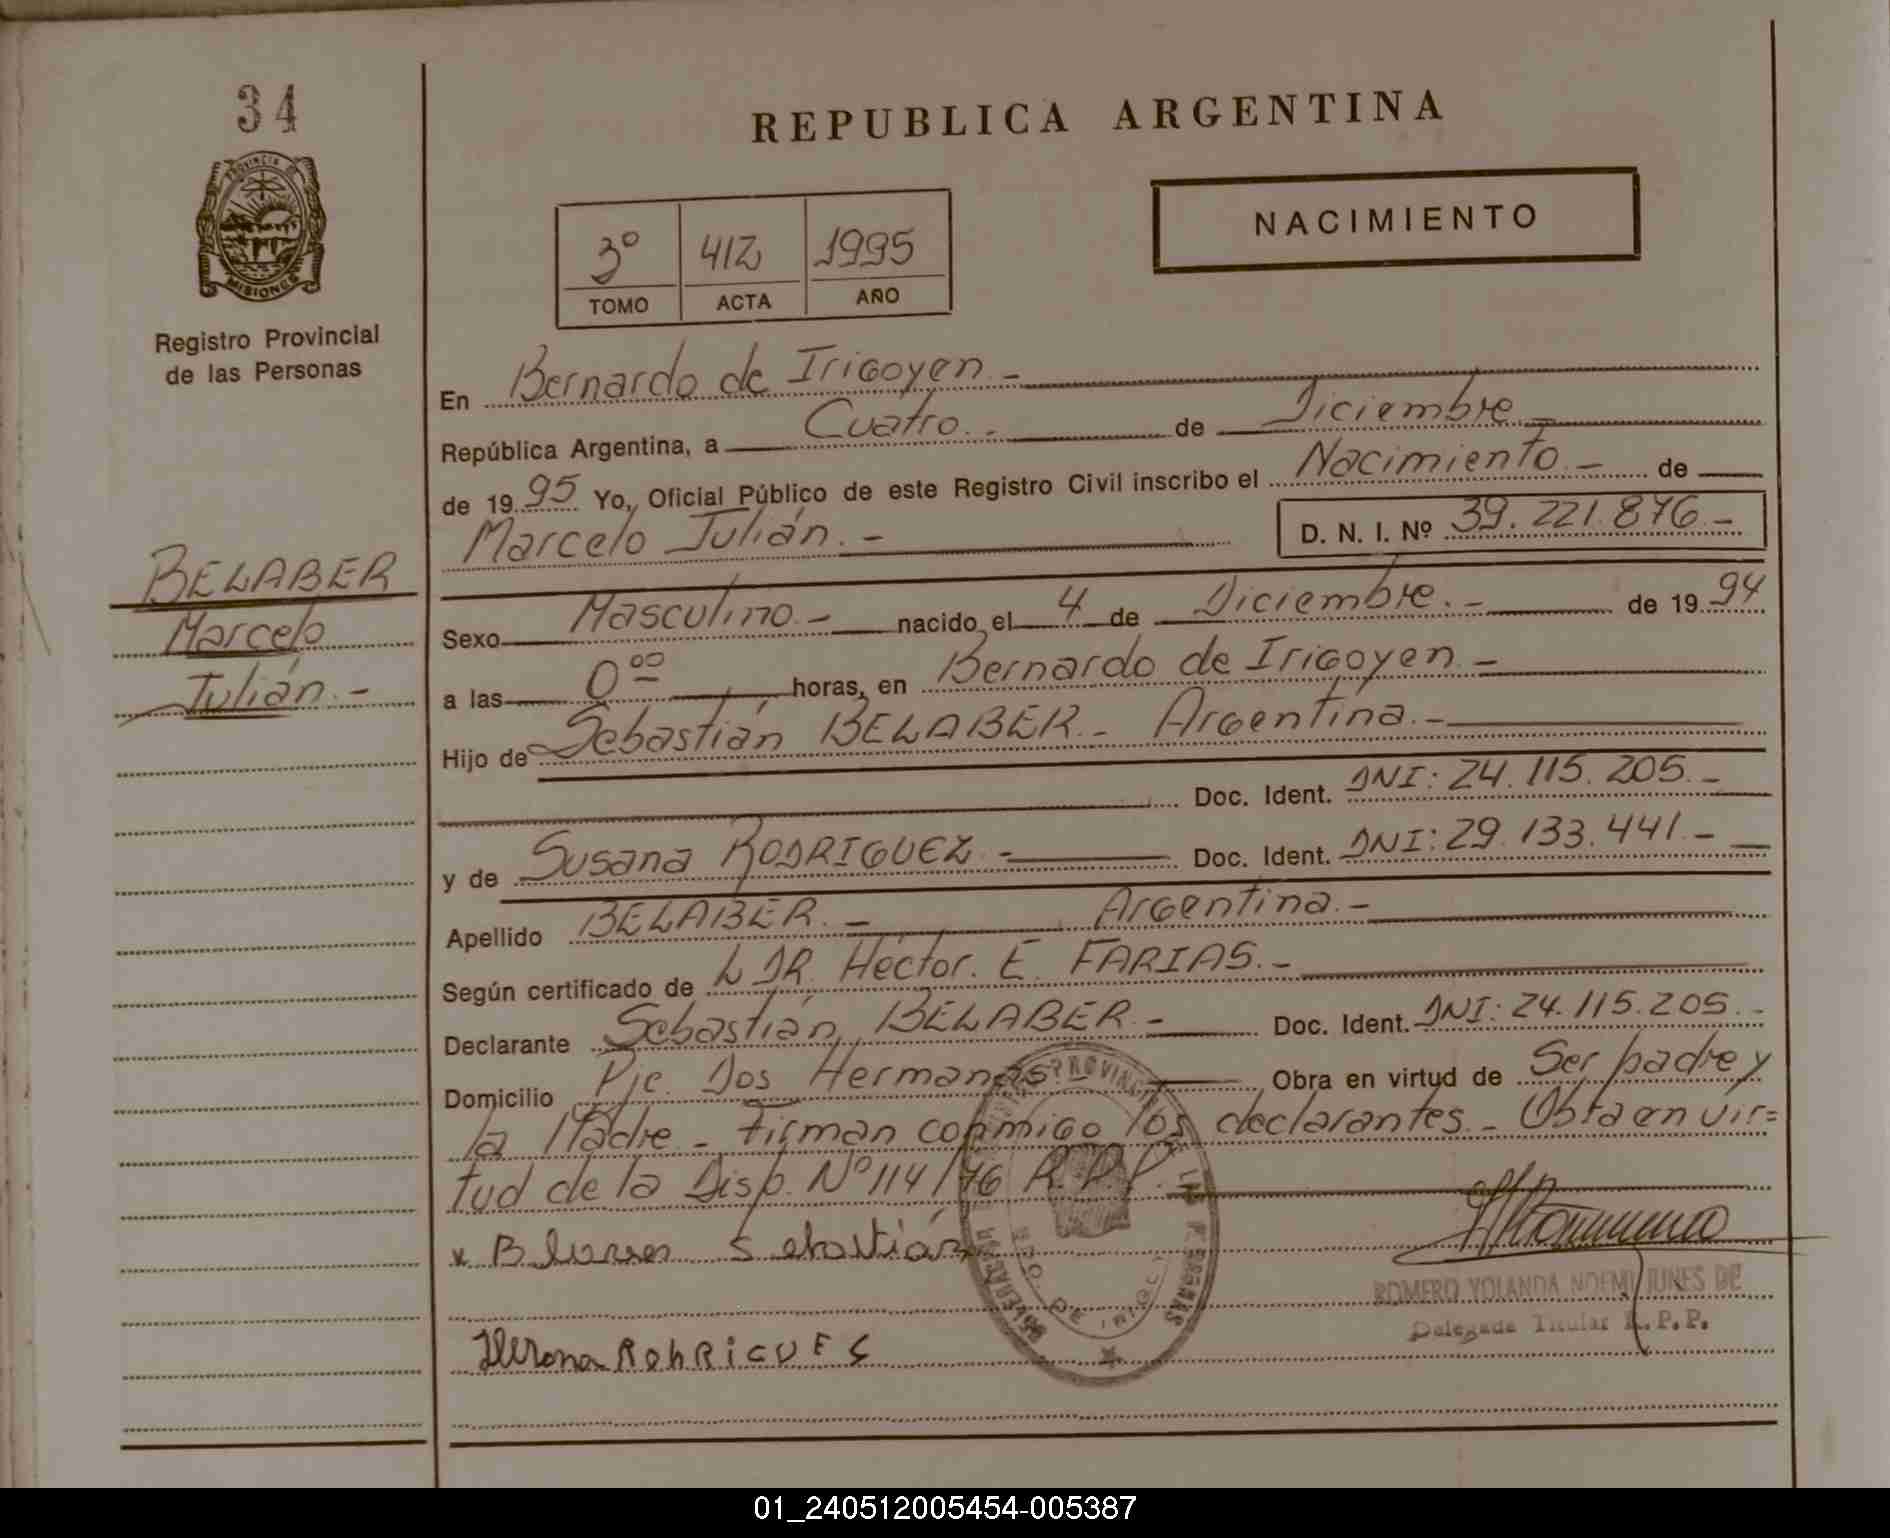 34
PROVINCIA DE
MISIONES
Registro Provincial
de las Personas
BELABER
Marcelo
Julián.-
REPUBLICA ARGENTINA
NACIMIENTO
3º 412 1995
TOMO ACTA AÑO
En Bernardo de Irigoyen.-
República Argentina, a Cuatro.- de Diciembre.-
de 1995 Yo, Oficial Público de este Registro Civil inscribo el Nacimiento.- de
Marcelo Julián.- D. N. I. Nº 39.221.876.-
Sexo Masculino.- nacido el 4 de Diciembre.- de 1994
a las 0 00 horas, en Bernardo de Irigoyen.-
Hijo de Sebastián BELABER.- Argentina.-
Doc. Ident. DNI: 24.115.205.-
y de Susana RODRIGUEZ.- Doc. Ident. DNI: 29.133.441.-
Apellido BELABER.- Argentina.-
Según certificado de L DR. Héctor. E. FARIAS.-
Declarante Sebastián BELABER.- Doc. Ident. DNI: 24.115.205.-
Domicilio Pje. Dos Hermanas.- Obra en virtud de Ser padre y
la Madre.- Firman conmigo los declarantes.- Obra en vir=
tud de la Disp. Nº 114/76 R.P.P.-
Sebastián
RODRIGUES
ROMERO YOLANDA NOEMI JUNES DE
Delegada Titular R.P.P.
01_240512005454-005387